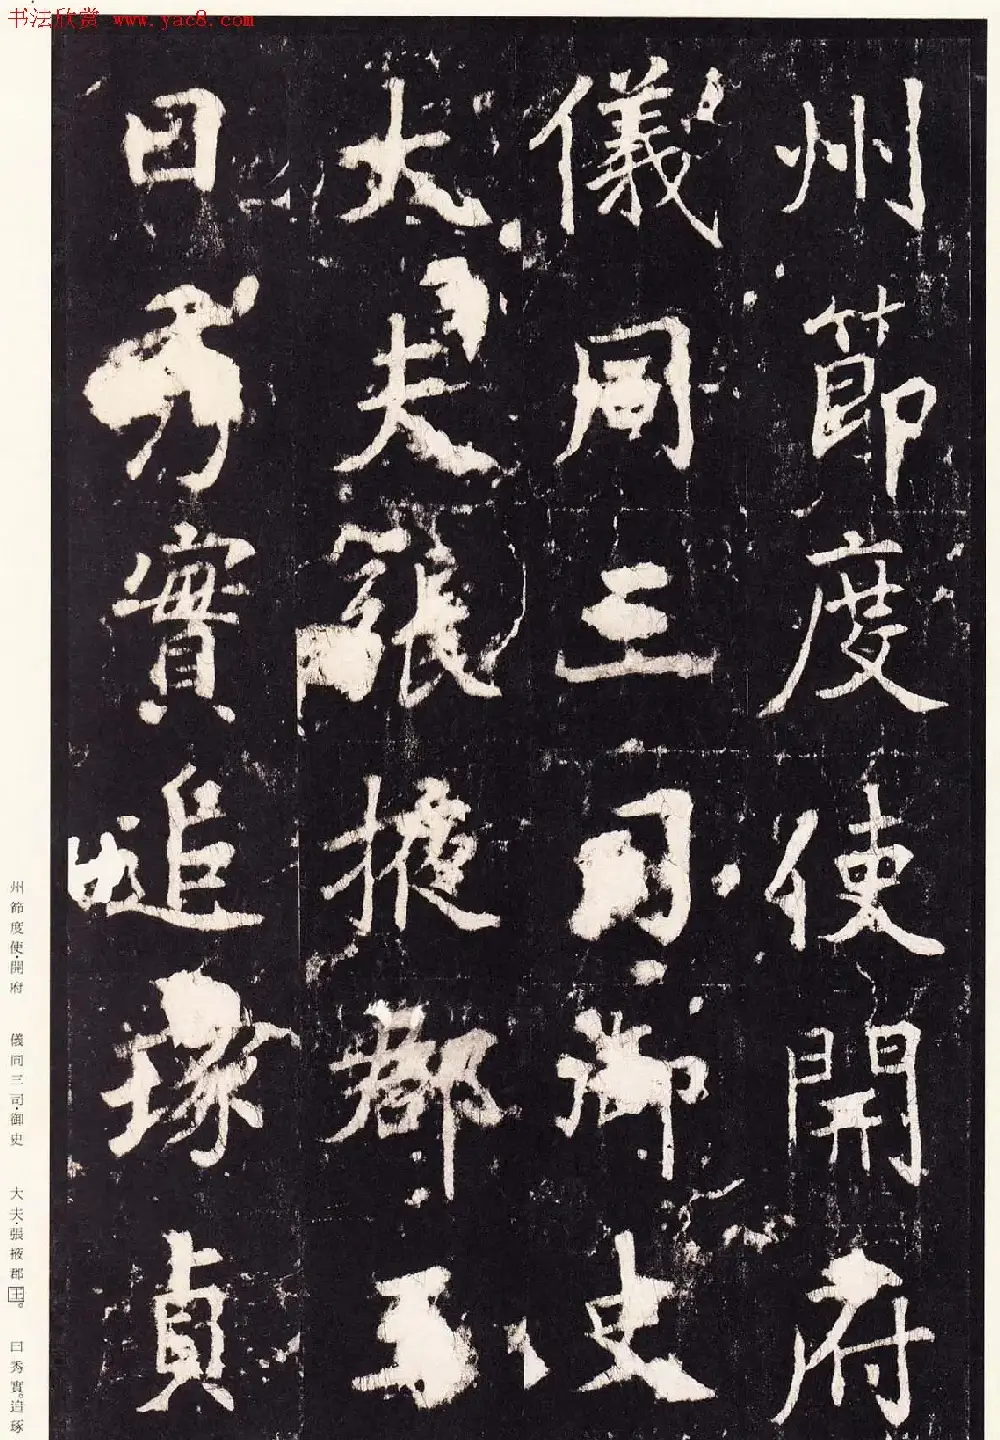 书法欣赏 www.yac8.com
州節度使開府
儀同三司御史
大夫張掖郡王
曰秀實追琢貞
州節度使·開府 儀同三司·御史 大夫·張掖郡王。 曰秀實。追琢